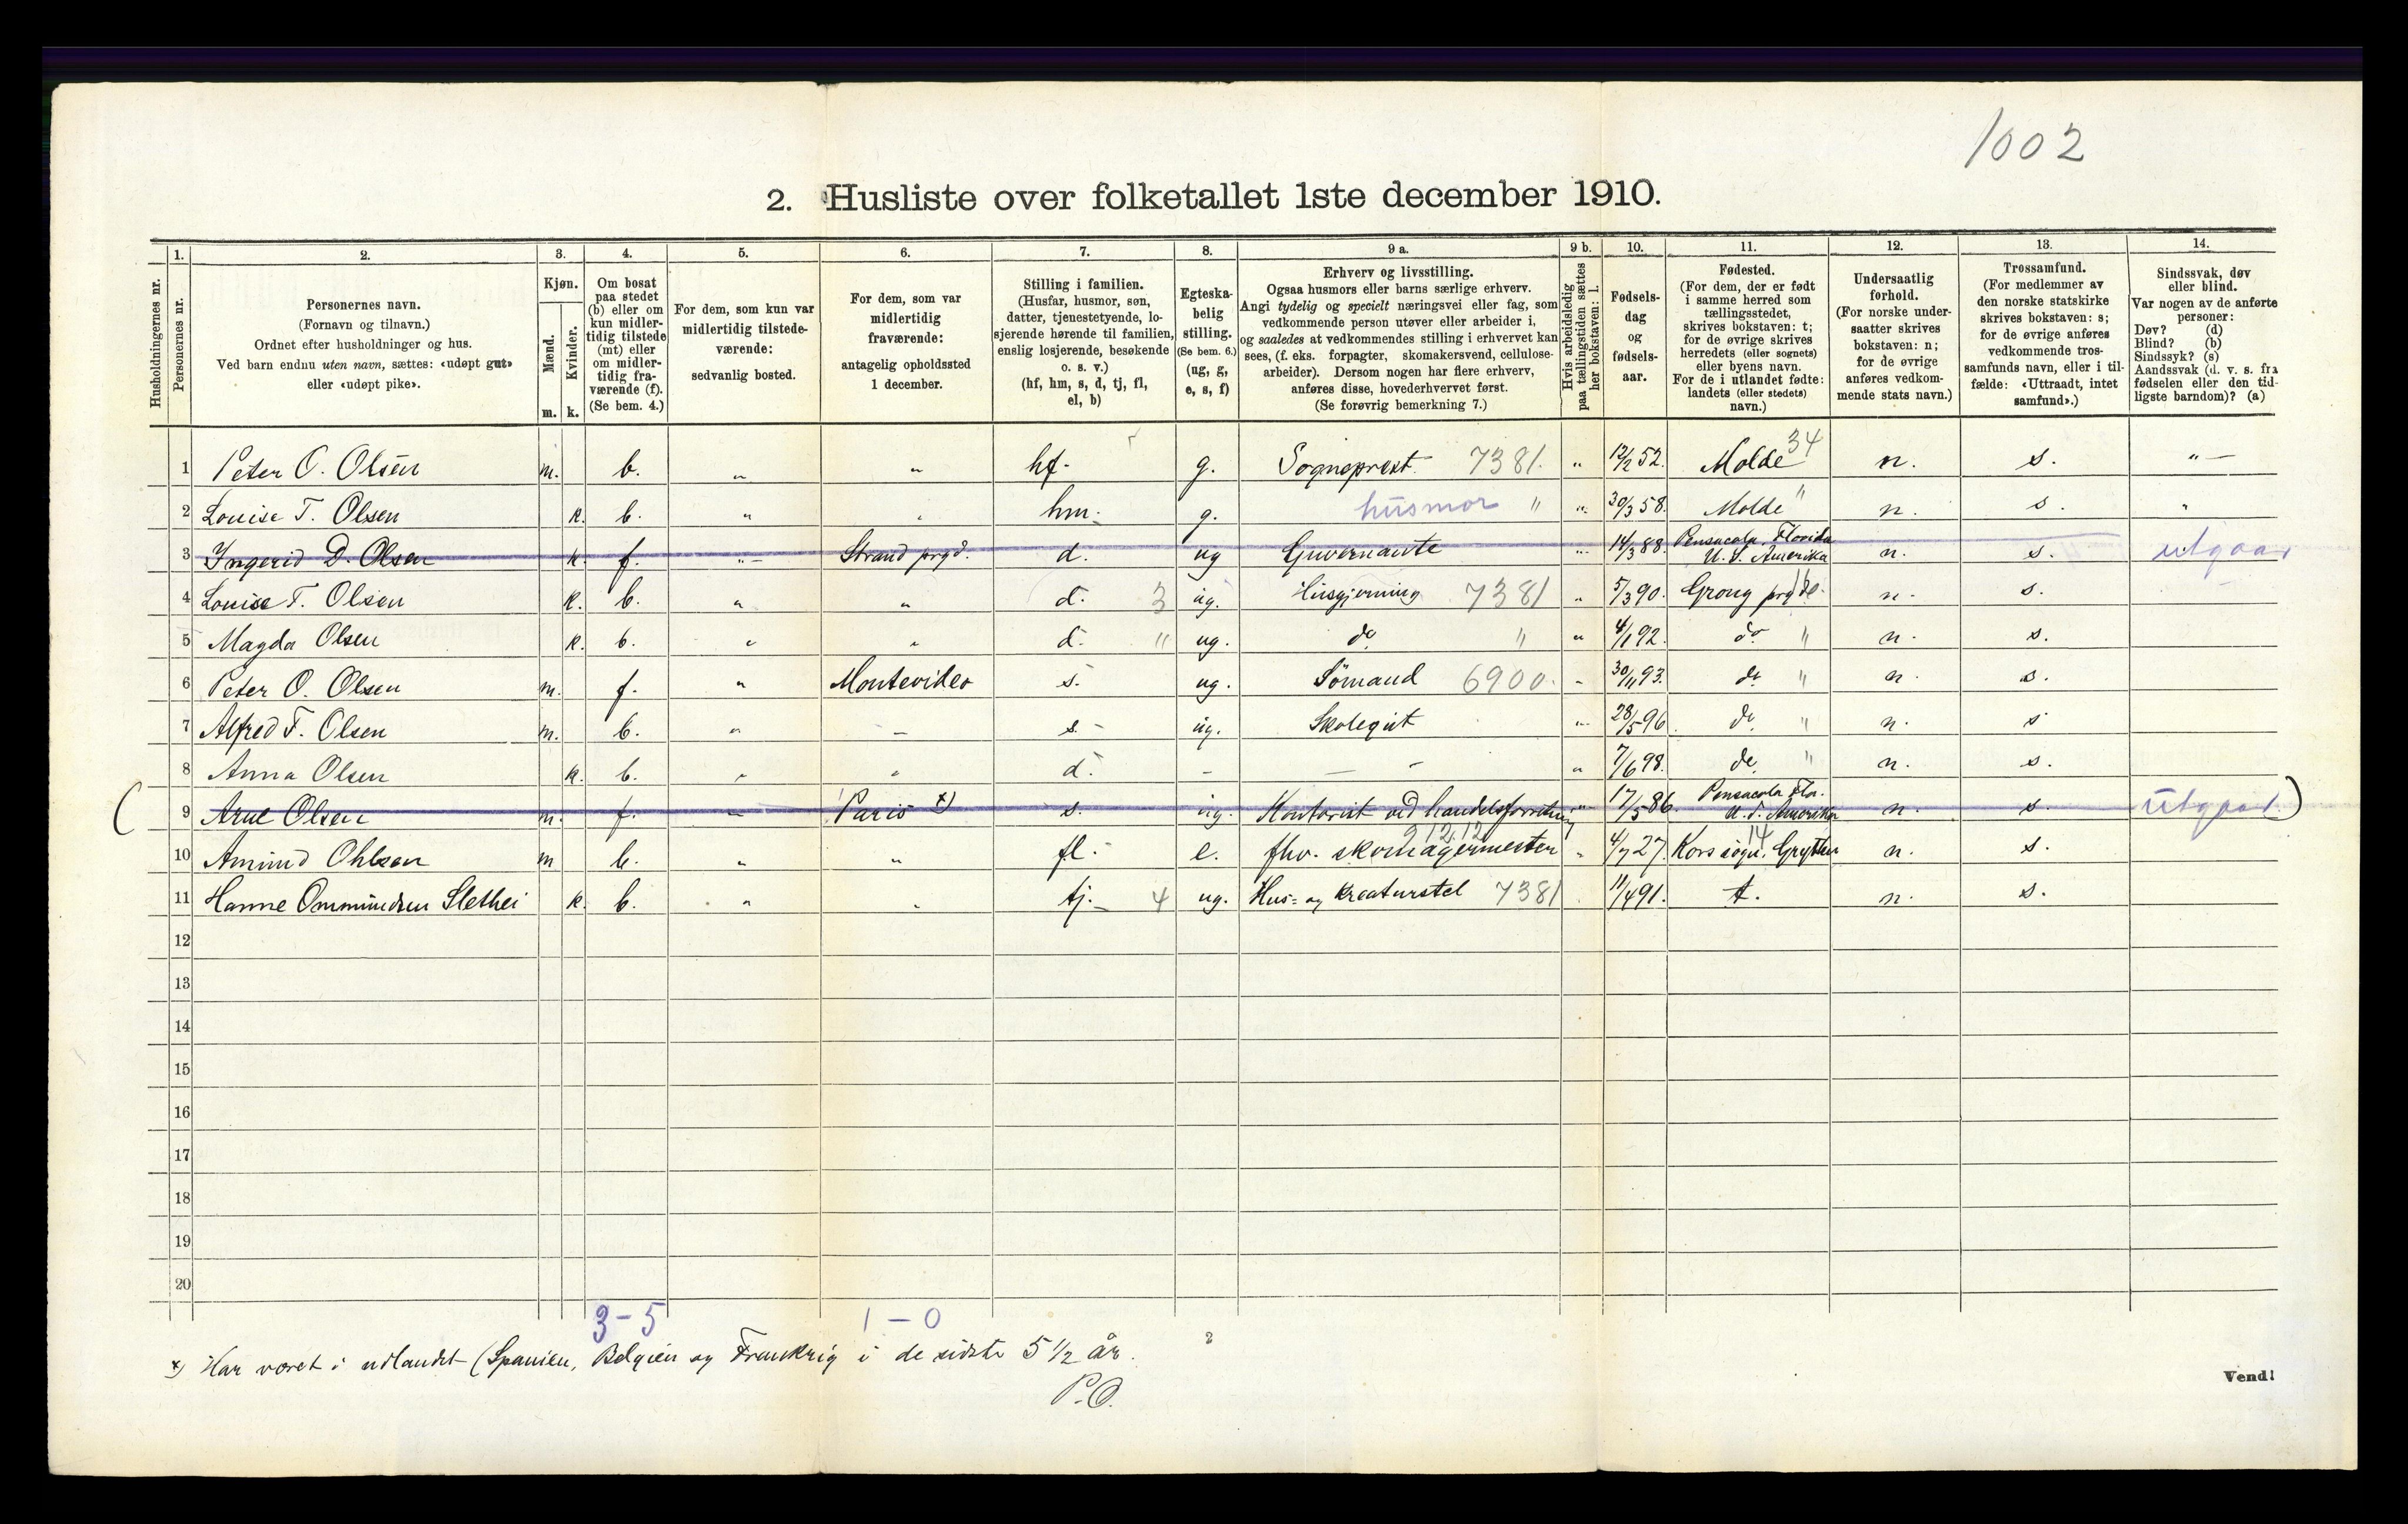 1002
2. Husliste over folketallet 1ste december 1910.
Husholdningernes nr.
1. Personernes nr.
2. Personernes navn. (Fornavn og tilnavn.) Ordnet efter husholdninger og hus. Ved barn endnu uten navn, sættes: «udøpt gut» eller «udøpt pike».
3. Kjøn. Mænd. m. Kvinder. k.
4. Om bosat paa stedet (b) eller om kun midlertidig tilstede (mt) eller om midlertidig fraværende (f). (Se bem. 4.)
5. For dem, som kun var midlertidig tilstedeværende: sedvanlig bosted.
6. For dem, som var midlertidig fraværende: antagelig opholdssted 1 december.
7. Stilling i familien. (Husfar, husmor, søn, datter, tjenestetyende, losjerende hørende til familien, enslig losjerende, besøkende o. s. v.) (hf, hm, s, d, tj, fl, el, b)
8. Egteskabelig stilling. (Se bem. 6.) (ug, g, e, s, f)
9 a. Erhverv og livsstilling. Ogsaa husmors eller barns særlige erhverv. Angi tydelig og specielt næringsvei eller fag, som vedkommende person utøver eller arbeider i, og saaledes at vedkommendes stilling i erhvervet kan sees, (f. eks. forpagter, skomakersvend, cellulosearbeider). Dersom nogen har flere erhverv, anføres disse, hovederhvervet først. (Se forøvrig bemerkning 7.)
9 b. Hvis arbeidsledig paa tællingstiden sættes her bokstaven: l.
10. Fødselsdag og fødselsaar.
11. Fødested. (For dem, der er født i samme herred som tællingsstedet, skrives bokstaven: t; for de øvrige skrives herredets (eller sognets) eller byens navn. For de i utlandet fødte: landets (eller stedets) navn.)
12. Undersaatlig forhold. (For norske undersaatter skrives bokstaven: n; for de øvrige anføres vedkommende stats navn.)
13. Trossamfund. (For medlemmer av den norske statskirke skrives bokstaven: s; for de øvrige anføres vedkommende trossamfunds navn, eller i tilfælde: «Uttraadt, intet samfund».)
14. Sindssvak, døv eller blind. Var nogen av de anførte personer: Døv? (d) Blind? (b) Sindssyk? (s) Aandssvak (d. v. s. fra fødselen eller den tidligste barndom)? (a)
1 Peter O. Olsen m. b. " " hf. g. Sogneprest. 7381. " 12/2 52. Molde 34 n. s. "–
2 Louise T. Olsen k. b. " " hm. g. husmor " " 30/3 58. Molde " n. s. "
3 Ingerid D. Olsen k. f. " Strand prgd. d. ug Guvernante " 14/3 88. Pensacola, Florida U. S. Amerika n. s. utgaar
4 Louise T. Olsen k. b. " " d. 3 ug. Husgjerning 7381 " 5/3 90. Grong prgd. n. s.
5 Magda Olsen k. b. " " d. " ug. do " " 4/1 92. do " n. s.
6 Peter O. Olsen m. f. " Montevideo s. ug. Sömand 6900. " 30/11 93. do " n. s.
7 Alfred F. Olsen m. b. " – s. ug. Skolegut " 28/5 96 do " n. s
8 Anna Olsen k. b. " " d. – – – " 7/6 98. do " n. s.
9 Arne Olsen m. f. " Paris x) s. ug. Kontorist ved handelsforretning " 17/5 86. Pensacola Flor. U. S. Amerika n. s. Utgaar.
10 Amund Ohlsen m b. " " fl. e. fhv. skomagermester 912.12 " 4/7 27. Kors sogn, Grytten 14 n. s.
11 Hanne Ommundsen Slethei k. b. " " tj. 4 ug. Hus- og kreaturstel 7381 11/4 91. t. n. s.
12
13
14
15
16
17
18
19
20
3 – 5 1 – 0
x) Har været i udlandet (Spanien, Belgien og Frankrig i de sidste 5 1/2 år.
2
P. O.
Vend!